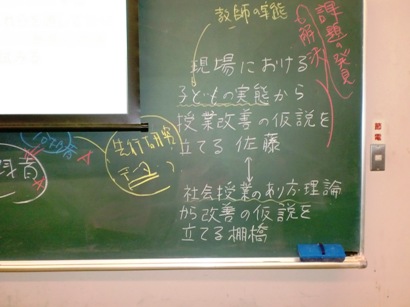 教師の実態
課題の発見
の解決
現場における
子どもの実態から
授業改善の仮説を
立てる 佐藤
社会授業のあり方・理論
から改善の仮説を
立てる 棚橋
先行研究
節電